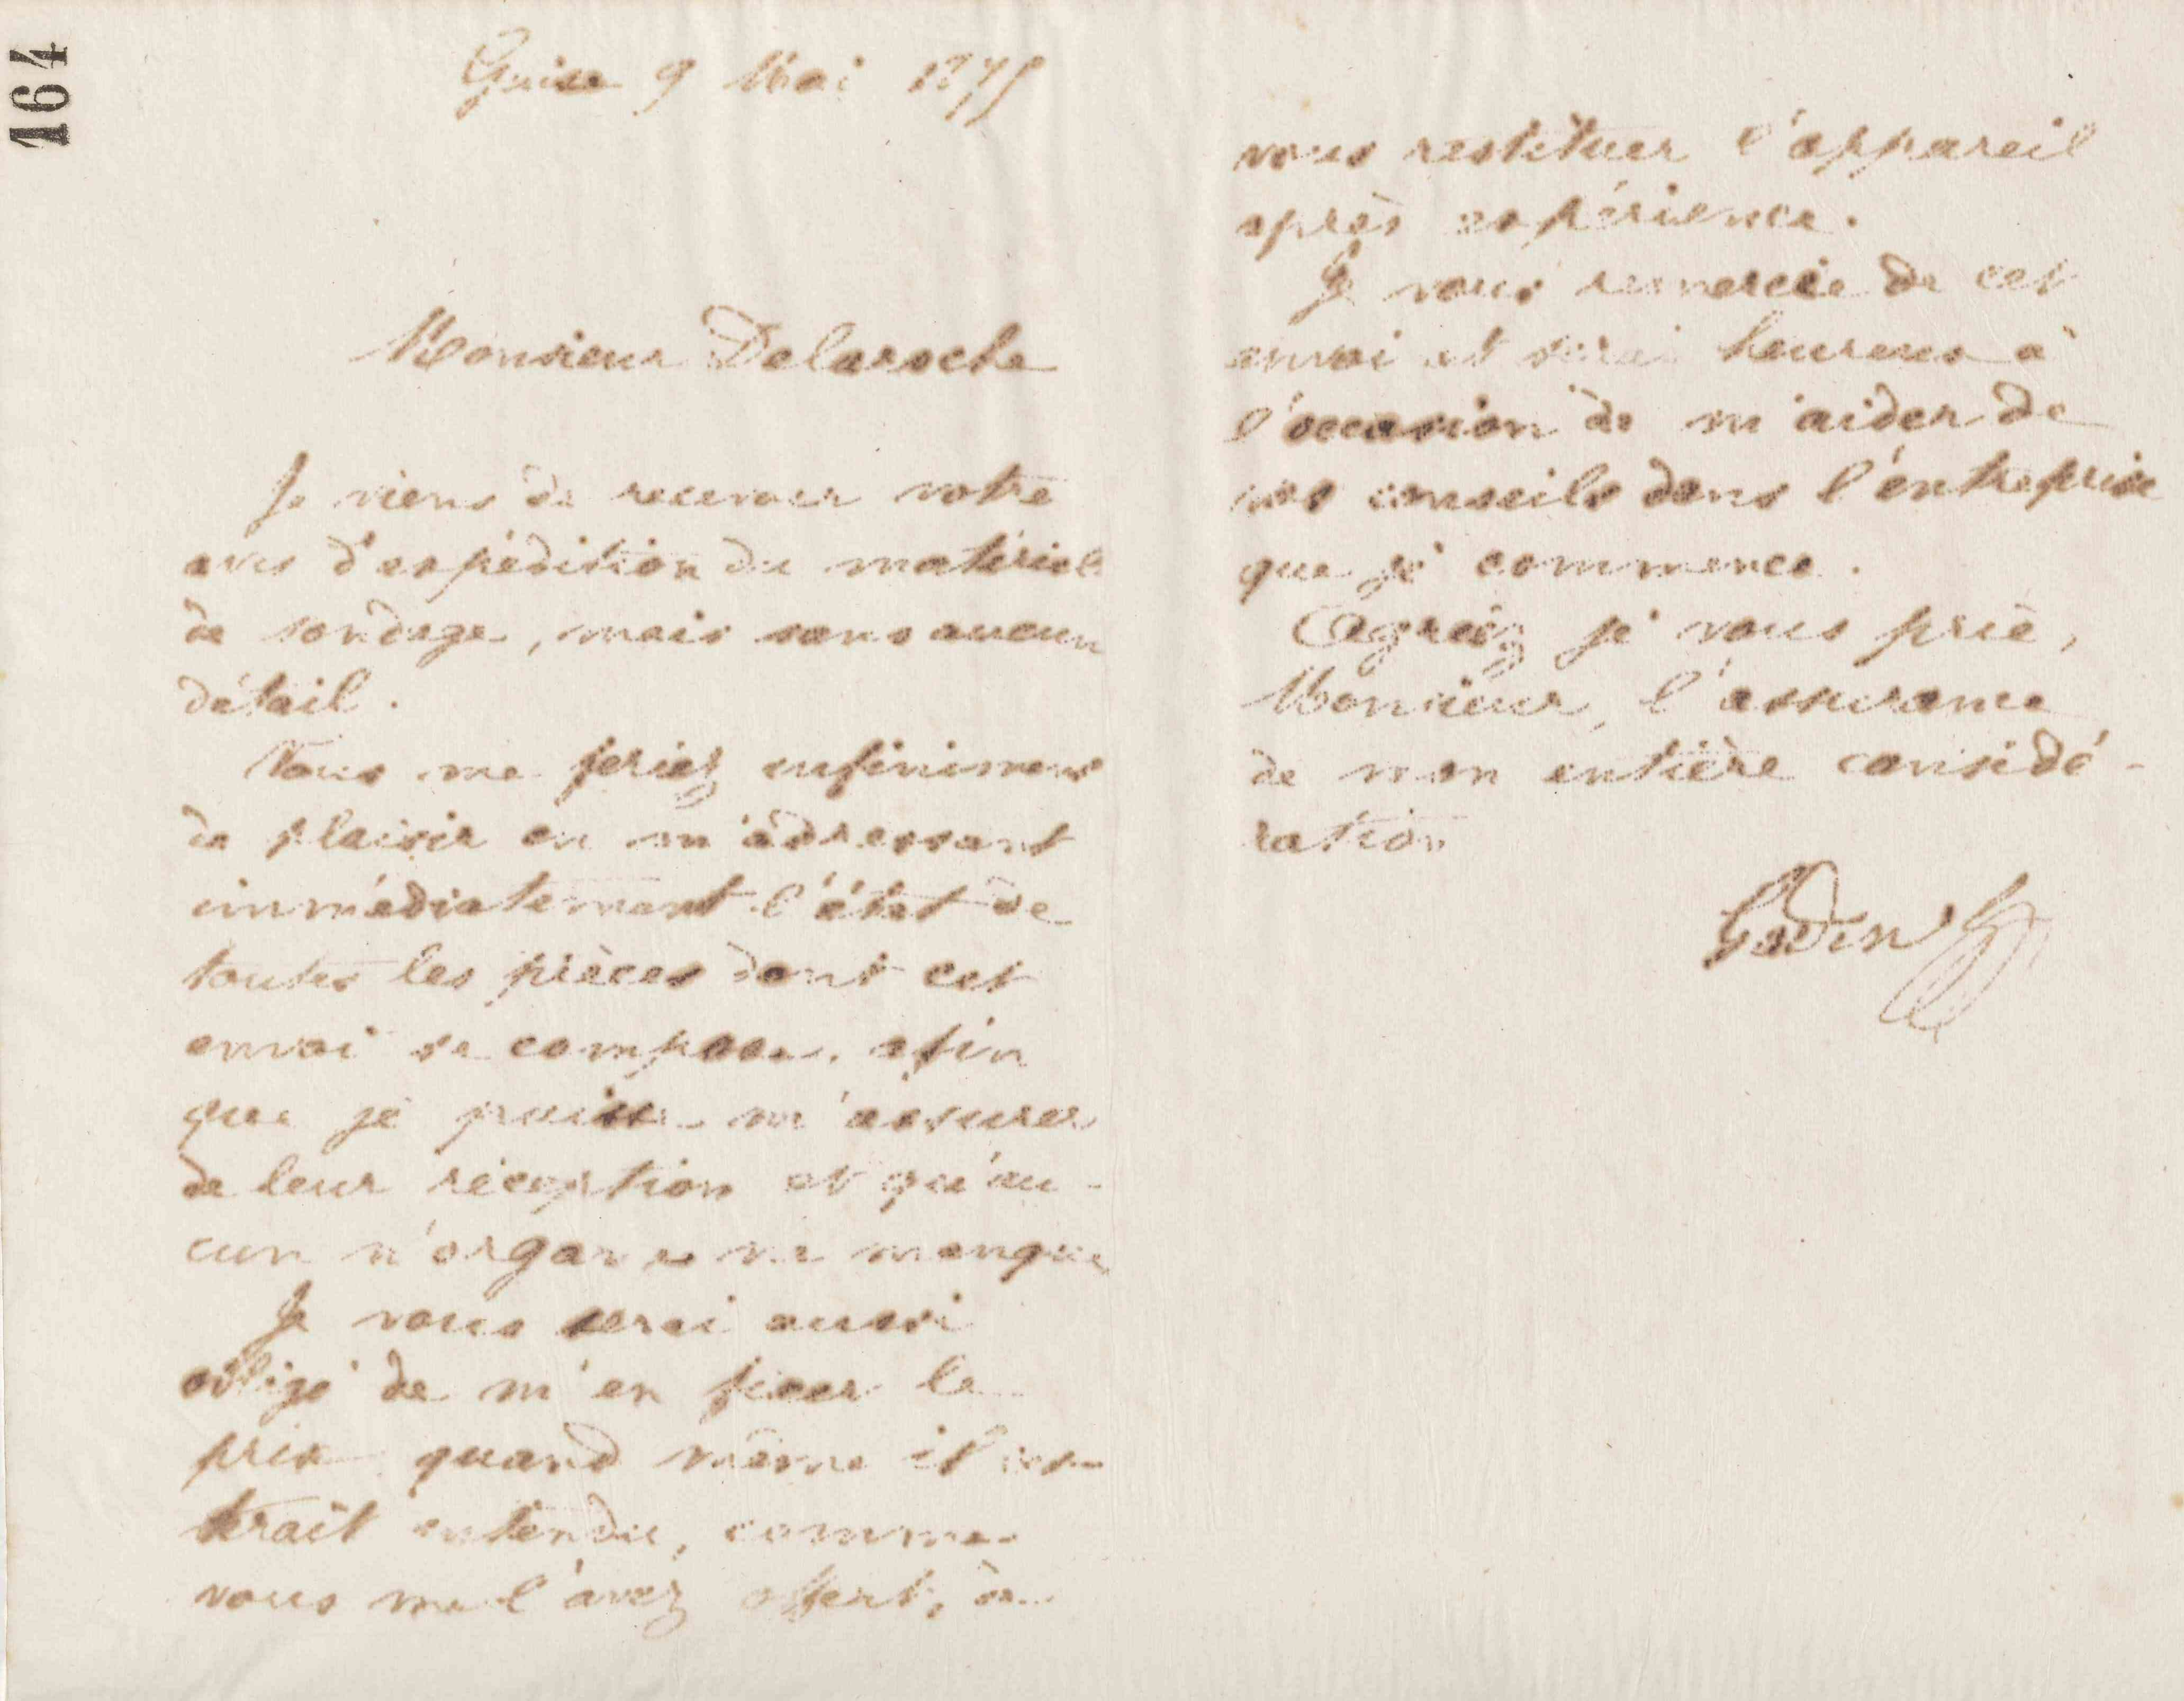 164
Guise 9 Mai 1875
Monsieur Delaroche
Je viens de recevoir votre
avis d'expédition du matériel
de sondage, mais sans aucun
détail.
Vous me feriez infiniment
de plaisir en m'adressant
immédiatement l'état de
toutes les pièces dont cet
envoi se compose, afin
que je puisse m'assurer
de leur réception et qu'au-
cun n'organe ne manque
Je vous serai aussi
obligé de m'en fixer le
prix quand même il
serait entendu, comme
vous me l'avez offert, de
vous restituer l'appareil
après expérience.
Je vous remercie de cet
envoi et serai heureux à
l'occasion de m'aider de
vos conseils dans l'entreprise
que je commence.
Agréez je vous prie,
Monsieur, l'assurance
de mon entière considé-
ration
Godin